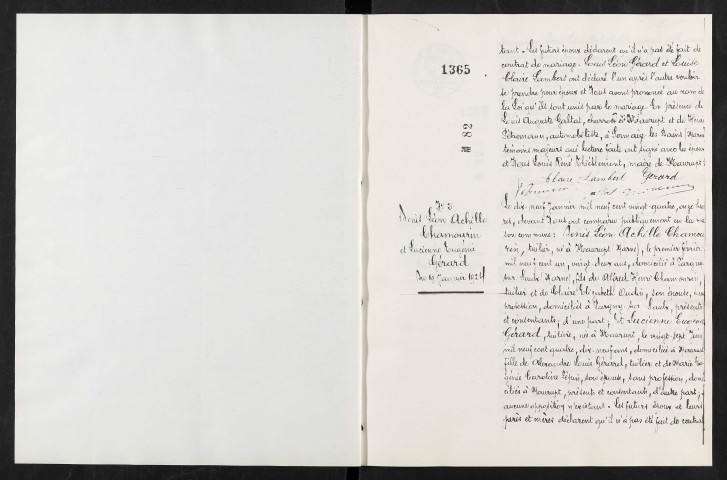 1365
N 82
tant. Les futurs époux déclarent qu'il n'a pas été fait de
contrat de mariage. Louis Léon Gérard et Louise
Claire Lambert ont déclaré l'un après l'autre vouloir
se prendre pour époux et Nous avons prononcé au nom de
la Loi qu'ils sont unis par le mariage. En présence de
Louis Auguste Galtat, charron à Maurupt et de Henri
automobiliste, à Sermaize les Bains (Marne)
témoins majeurs qui lecture faite ont signé avec les époux
et Nous Louis René Thiéblemont, maire de Maurupt.
Claire Lambert Gérard
N° 3
Denis Léon Achille
Chamourin
et Lucienne Eugénie
Gérard
Du 19 Janvier 1924
Le dix-neuf Janvier mil neuf cent vingt-quatre, onze heu
res, devant Nous ont comparu publiquement en la mai
son commune: Denis Léon Achille Chamou
rin, tuilier, né à Maurupt (Marne), le premier février
mil neuf cent un, vingt-deux ans, domicilié à Pargny-
sur-Saulx (Marne), fils de Alfred Henri Chamourin,
tuilier et de Claire Elizabeth Oudin, son épouse, sans
profession, domiciliés à Pargny-sur-Saulx, présents
et consentants, d'une part; Et Lucienne Eugénie
Gérard, tuilière, née à Maurupt, le vingt-sept Juin
mil neuf cent quatre, dix-neuf ans, domiciliée à Maurupt
fille de Alexandre Louis Gérard, tuilier et de Marie Eu
génie Caroline son épouse, sans profession, domi
ciliés à Maurupt, présents et consentants, d'autre part;
aucune opposition n'existant. Les futurs époux et leurs
pères et mères déclarent qu'il n'a pas été fait de contrat